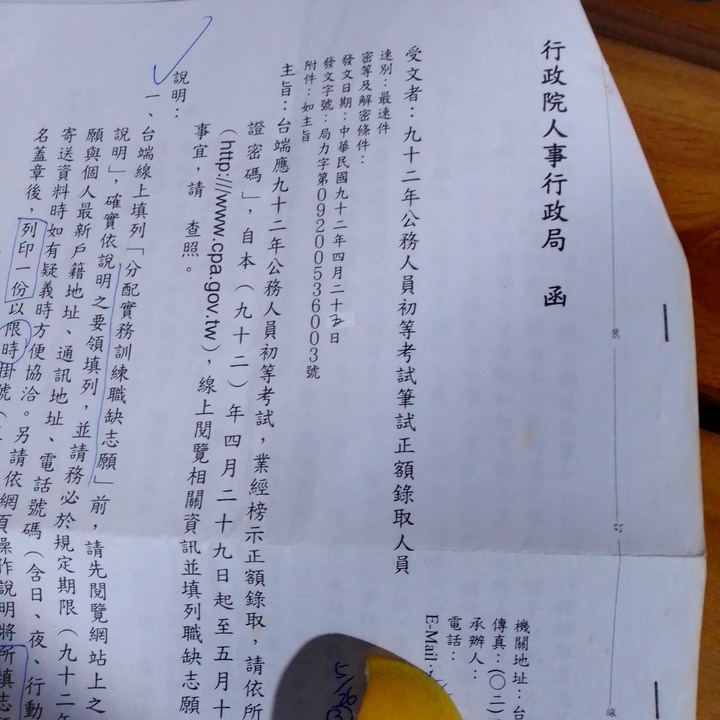 行政院人事行政局　函
機關地址：台
傳真：(○二
承辦人：
電話：
E-Mail：
受文者：九十二年公務人員初等考試筆試正額錄取人員
速別：最速件
密等及解密條件：
發文日期：中華民國九十二年四月二十五日
發文字號：局力字第0920053600３號
附件：如主旨
主旨：台端應九十二年公務人員初等考試，業經榜示正額錄取，請依所
證密碼」，自本（九十二）年四月二十九日起至五月十
(http://www.cpa.gov.tw)，線上閱覽相關資訊並填列職缺志願
事宜，請　查照。
說明：
一、台端線上填列「分配實務訓練職缺志願」前，請先閱覽網站上之
說明」，確實依說明之要領填列，並請務必於規定期限（九十二年
願與個人最新戶籍地址、通訊地址、電話號碼（含日、夜、行動
寄送資料時如有疑義時方便協洽。另請依網頁操作說明將所填志
名蓋章後，列印一份以限時掛號（
裝
訂
線
5/26